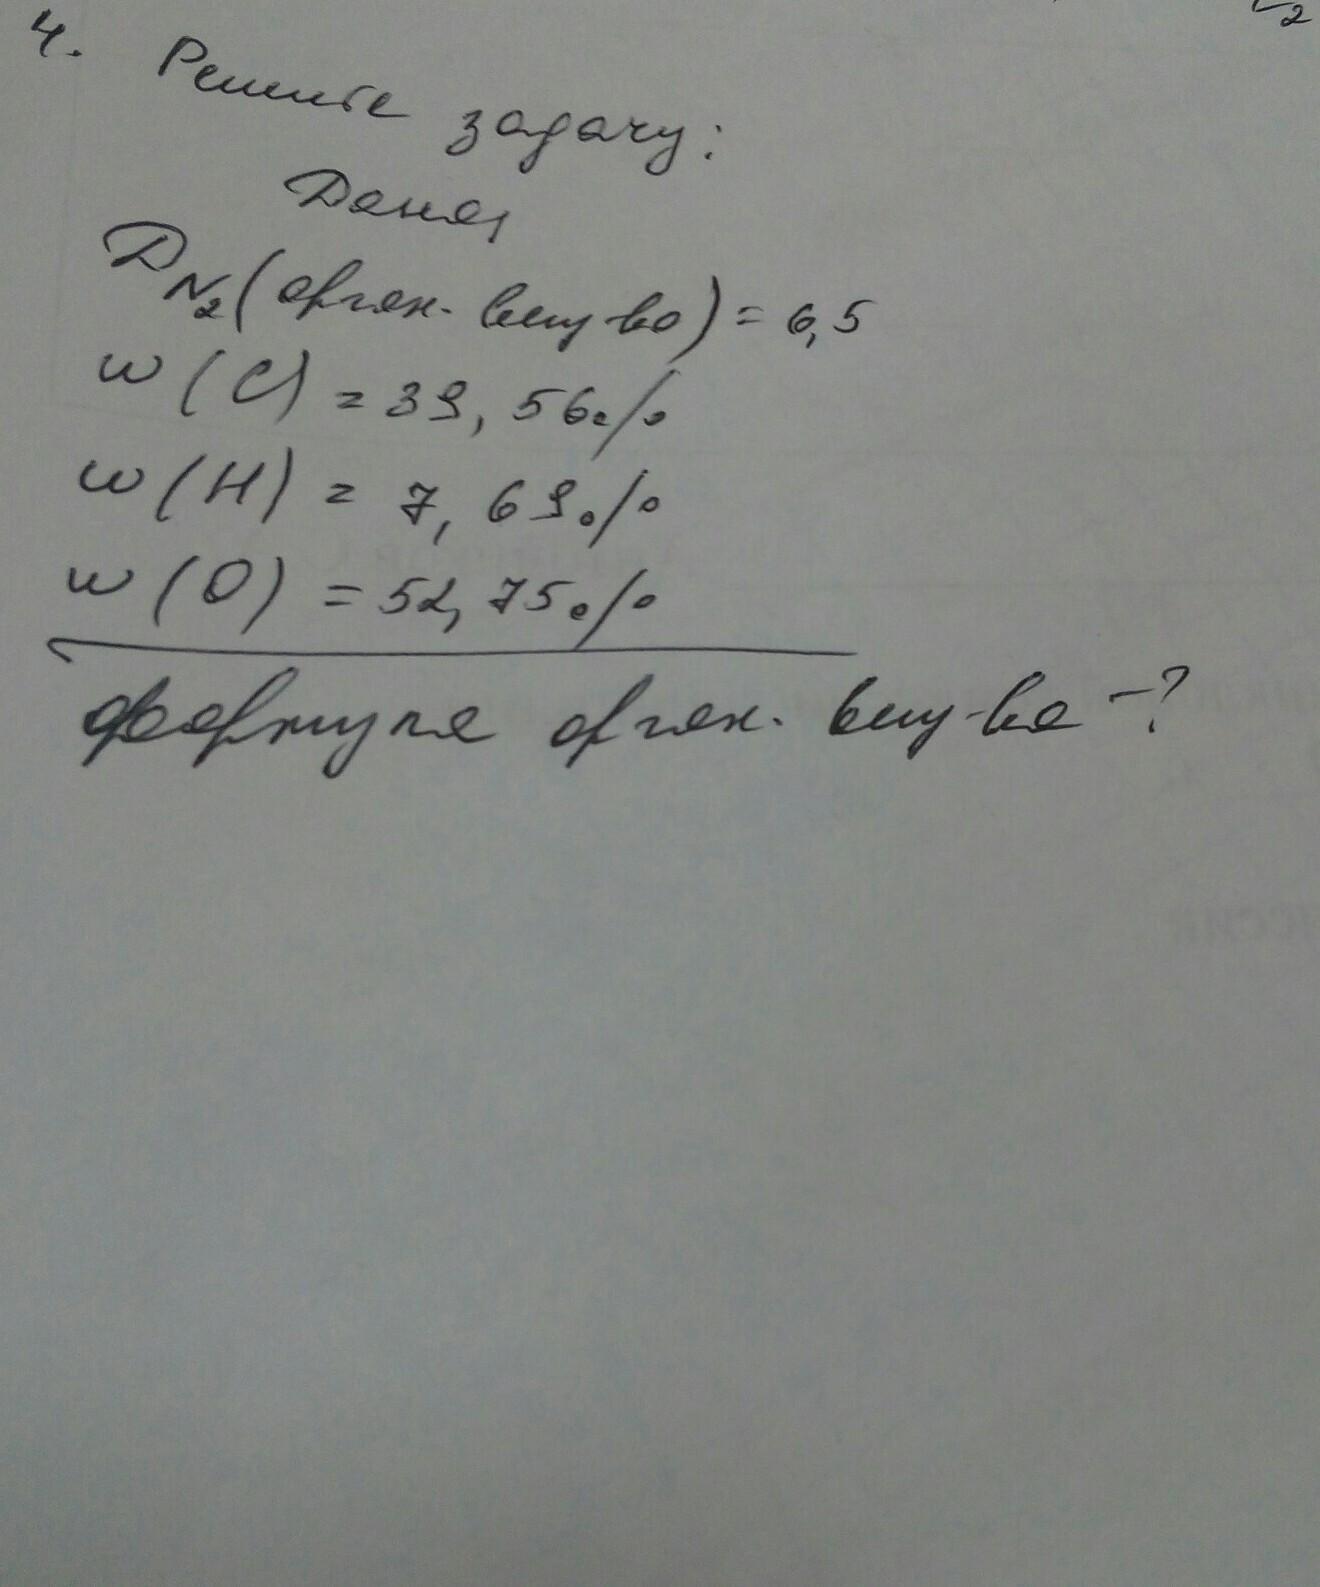 4. Решите задачу:
Дано,
D N₂ (орган. вещ-во) = 6,5
w (C) = 39,56%
w (H) = 7,69%
w (O) = 52,75%
формула орган. вещ-ва -?